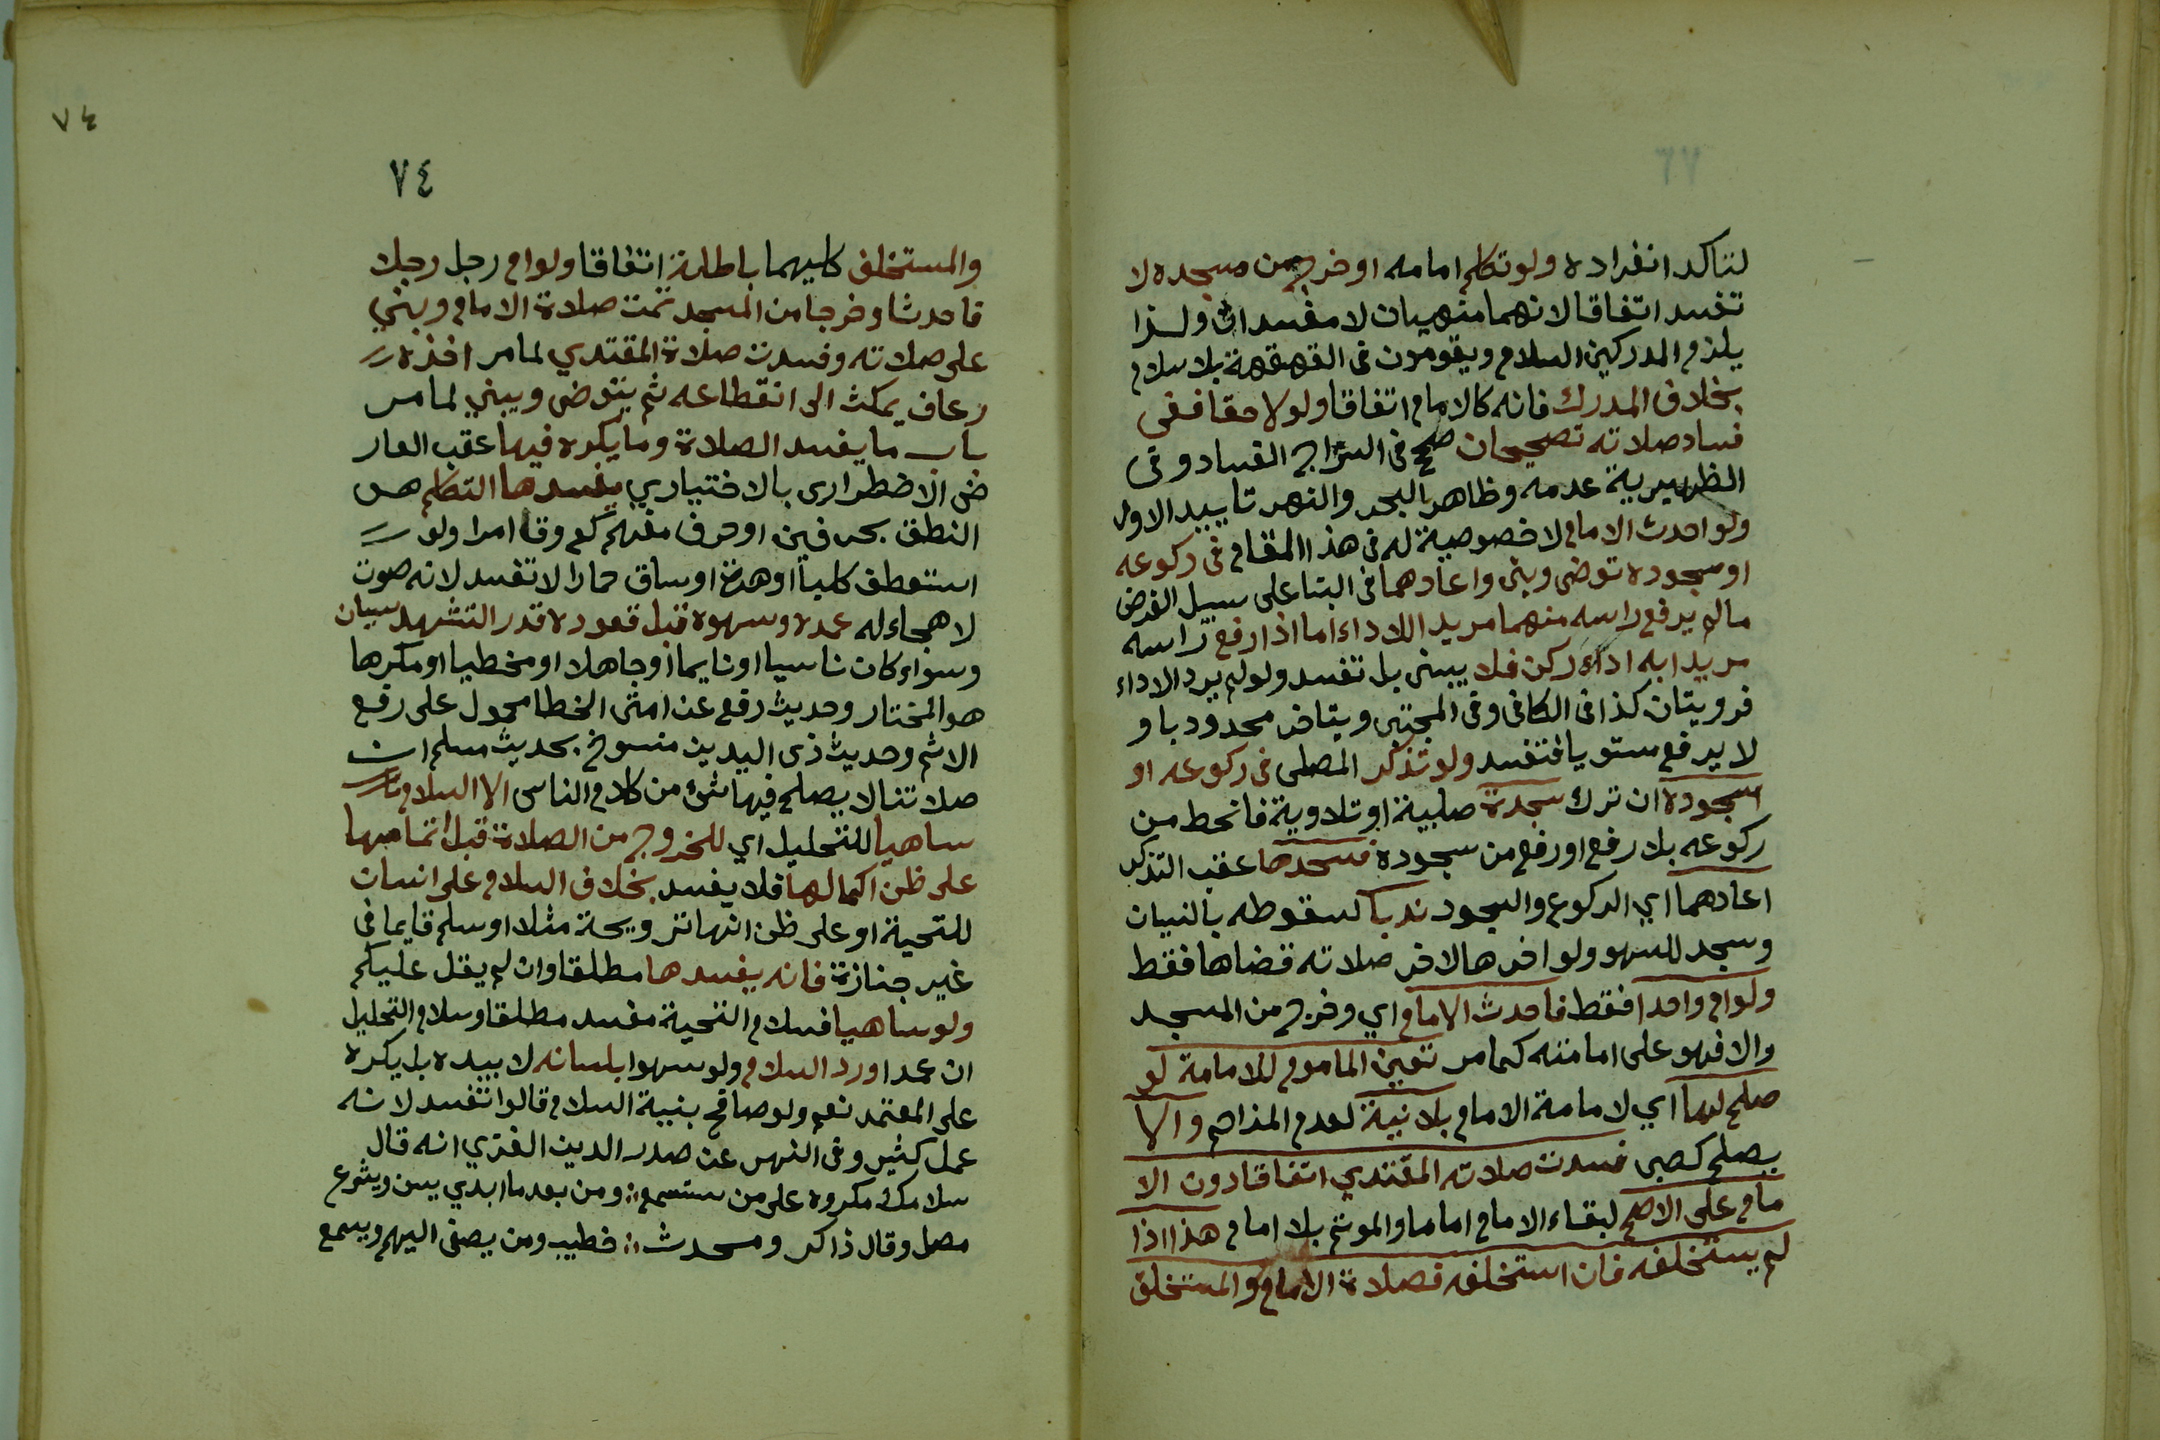 لتاكد انفراده ولو تكلم امامه او خرج من مسجده لا
تفسد اتفاقا لانهما منهيان لا مفسدان ولذا
يلزم المدركين السلام ويقومون فى القهقهة بلا سلام
بخلاف المدرك فانه كالامام اتفاقا ولو لاحقا ففى
فساد صلاته تصحيحان صحح فى السراج الفساد وفى
الظهيرية عدمه وظاهر البحر والنهر تاييد الاول
ولو احدث الامام لا خصوصية له فى هذا المقام فى ركوعه
او سجوده توضى وبنى واعادهما فى البنا على سبيل الفرض
مالم يرفع راسه منهما مريد اللاداء اما اذا رفع راسه
مريدا به اداء ركن فلا يبنى بل تفسد ولو لم يرد الاداء
فرويتان كذا فى الكافى وفى المجتبى ويتاخر محدودبا و
لا يرفع ستويا فتفسد ولو تذكر المصلى فى ركوعه او
سجوده ان ترك سجدة صلبية او تلاوية فانحط من
ركوعه بلا رفع او رفع من سجوده فسجدها عقب التذكر
اعادهما اي الركوع والسجود ندبا لسقوطه بالنسيان
وسجد للسهو ولو اخرها لاخر صلاته قضاها فقط
ولو ام واحدا فقط فاحدث الامام اي وخرج من المسجد
والا فهو على امامته كما مر تعين الماموم للامامة لو
صلح لها اي لامامة الامام بلا نية لعدم المزاحم والا
يصلح كصبى فسدت صلاته المقتدي اتفاقا دون الا
مام على الاصح لبقاء الامام اماما والموتم بلا امام هذا اذا
لم يستخلفه فان استخلفه فصلاة الامام والمستخلف
٧٤
٧٤
والمستخلف كليهما باطلة اتفاقا ولو ام رجل رجلا
فاحدثا وخرجا من المسجد تمت صلاة الامام وبنى
على صلاته وفسدت صلاة المقتدي لما مر اخذه
رعاف يمكث الى انقطاعه ثم يتوضى ويبني لما مر
باب ما يفسد الصلاة وما يكره فيها عقب العار
ضى الاضطرارى بالاختياري يفسدها التكلم هو
النطق بحرفين او حرف مفهم كع وق امرا ولو
استعطف كلبا او هرة او ساق حمارا لا تفسد لانه صوت
لا هجاء له عمده وسهوه قبل قعوده قدر التشهد سيان
وسواء كان ناسيا او نايما او جاهلا او مخطيا او مكرها
هو المختار وحديث رفع عن امتى الخطا محمول على رفع
الاثم وحديث ذى اليدين منسوخ بحديث مسلم ان
صلاتنا لا يصلح فيها شئ من كلام الناس الا السلام
ساهيا للتحليل اي للخروج من الصلاة قبل اتمامها
على ظن اكمالها فلا يفسد بخلاف السلام على انسان
للتحية او على ظن انها ترويحة مثلا او سلم قايما فى
غير جنازة فانه يفسدها مطلقا وان لم يقل عليكم
ولو ساهيا فسلام التحية مفسد مطلقا وسلام التحليل
ان عمدا ورد السلام ولو سهوا بلسانه لا بيده بل يكره
على المعتمد نعم ولو صافح بنية السلام قالوا تفسد لانه
عمل كثير وفى النهر عن صدر الدين الغزي انه قال
سلامك مكروه على من ستسمع ؛ ومن بعد ما ابدي يسن ويشرع
مصل وقال ذاكر ومحدث ؛ خطيب ومن يصغى اليهم ويسمع